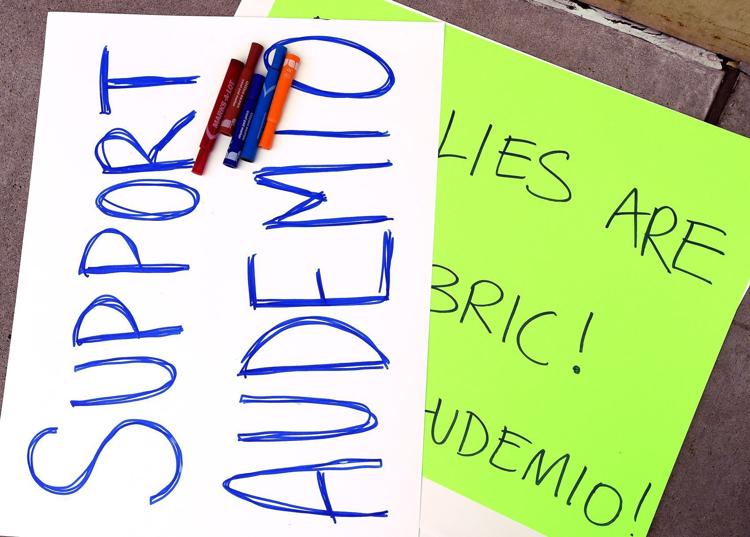 SUPPORT
AUDEMIO
MARKS-A-LOT
LIES ARE
BRIC!
AUDEMIO!